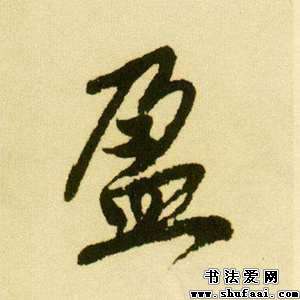 盈
书法爱网
www.shufaai.com